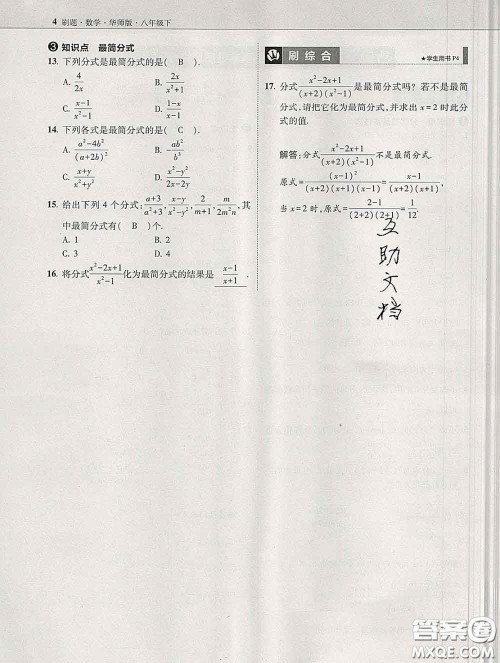 4 刷题·数学·华师版·八年级下
❸ 知识点 最简分式
13. 下列分式是最简分式的是( B ).
A. 4/(2x) B. 2x/(x²+1)
C. (x-1)/(x²-1) D. (1-x)/(x-1)
14. 下列各式是最简分式的是( C ).
A. (a²-4b²)/(a+2b)² B. -ab²/b²
C. (x+y)/(x²+y²) D. 2/(2x-2y)
15. 给出下列 4 个分式:(a+3)/(a²+3), (x-y)/(x²-y²), 2/(m+1), m/(2m²n), 其
中最简分式有( B )个.
A. 1 B. 2
C. 3 D. 4
16. 将分式(x²-2x+1)/(x²-1)化为最简分式的结果是 (x-1)/(x+1) .
刷综合
★学生用书 P4
17. 分式(x²-2x+1)/((x+2)(x²-1))是最简分式吗? 若不是最简
分式,请把它化为最简分式,并求出 x=2 时此分
式的值.
解答:分式(x²-2x+1)/((x+2)(x²-1))不是最简分式.
原式=(x-1)²/((x+2)(x+1)(x-1))=(x-1)/((x+2)(x+1)),
当 x=2 时,原式=(2-1)/((2+2)(2+1))=1/12.
互
助
文
档
答案圈
MXQE.COM